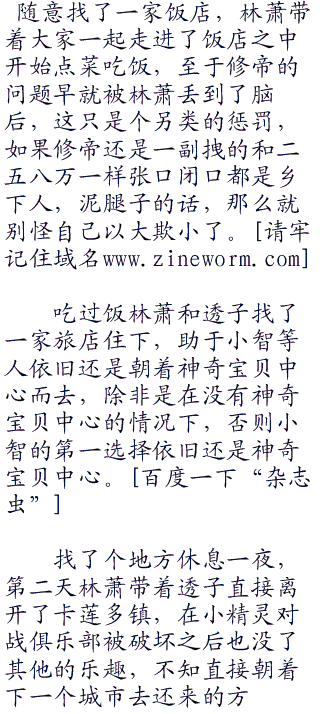 随意找了一家饭店，林萧带
着大家一起走进了饭店之中
开始点菜吃饭，至于修帝的
问题早就被林萧丢到了脑
后，这只是个另类的惩罚，
如果修帝还是一副拽的和二
五八万一样张口闭口都是乡
下人，泥腿子的话，那么就
别怪自己以大欺小了。[请牢
记住域名www.zineworm.com]
吃过饭林萧和透子找了
一家旅店住下，助于小智等
人依旧还是朝着神奇宝贝中
心而去，除非是在没有神奇
宝贝中心的情况下，否则小
智的第一选择依旧还是神奇
宝贝中心。[百度一下“杂志
虫”]
找了个地方休息一夜，
第二天林萧带着透子直接离
开了卡莲多镇，在小精灵对
战俱乐部被破坏之后也没了
其他的乐趣，不知直接朝着
下一个城市去还来的方